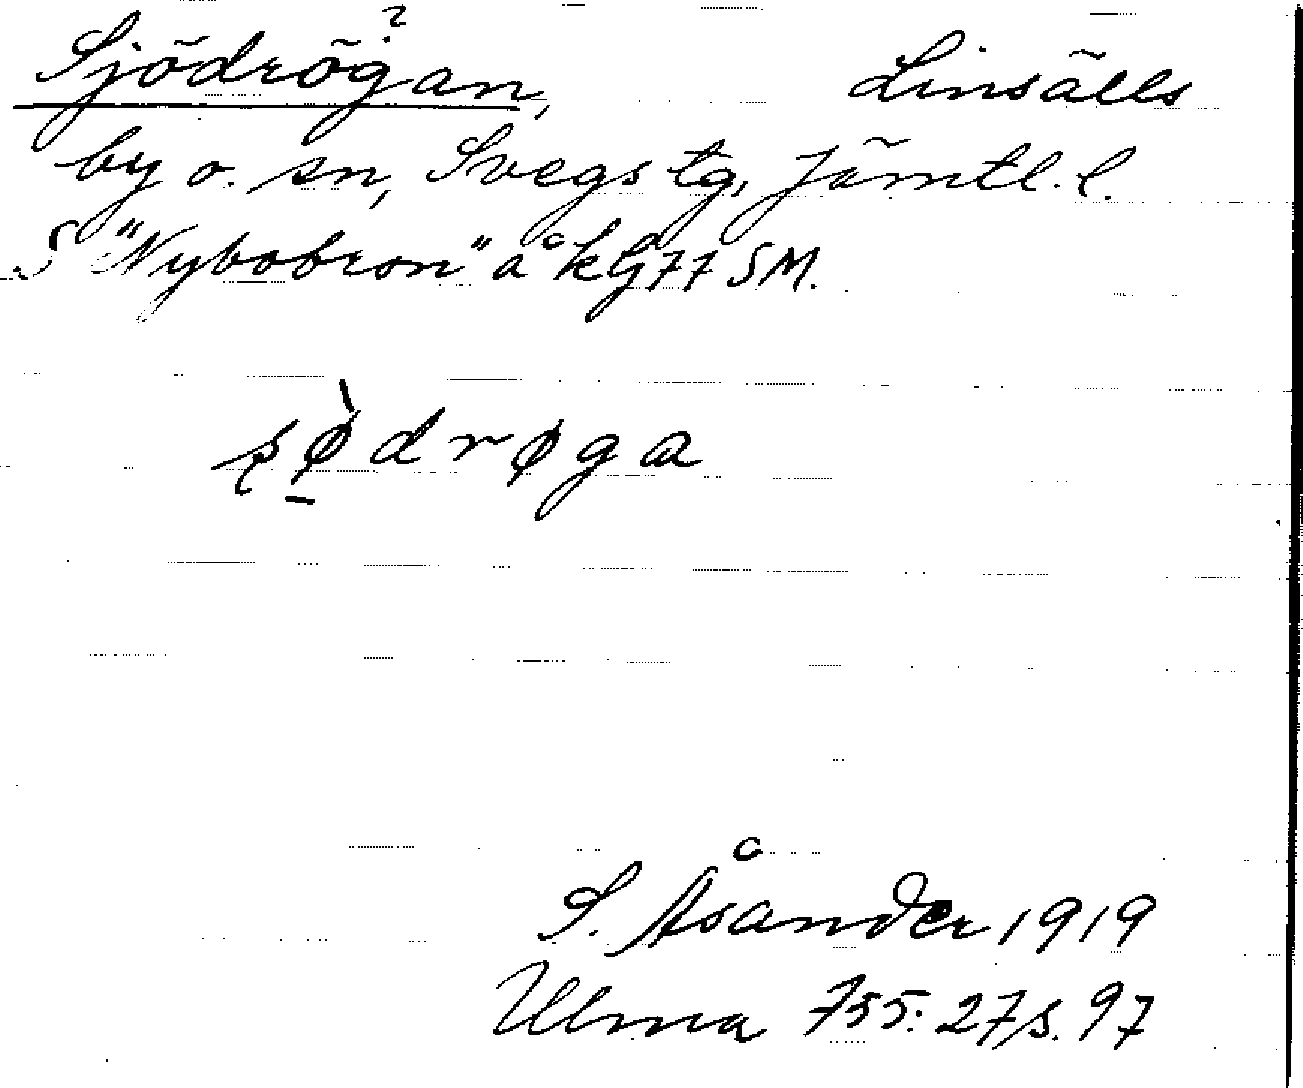 Sjödrögan, ? Linsälls
by o. sn, Svegs tg, Jämtl. l.
S "Nybobron" å kg 77 SM.
sø̀drøga
S. Åsander 1919
Ulma 755:27 s. 97